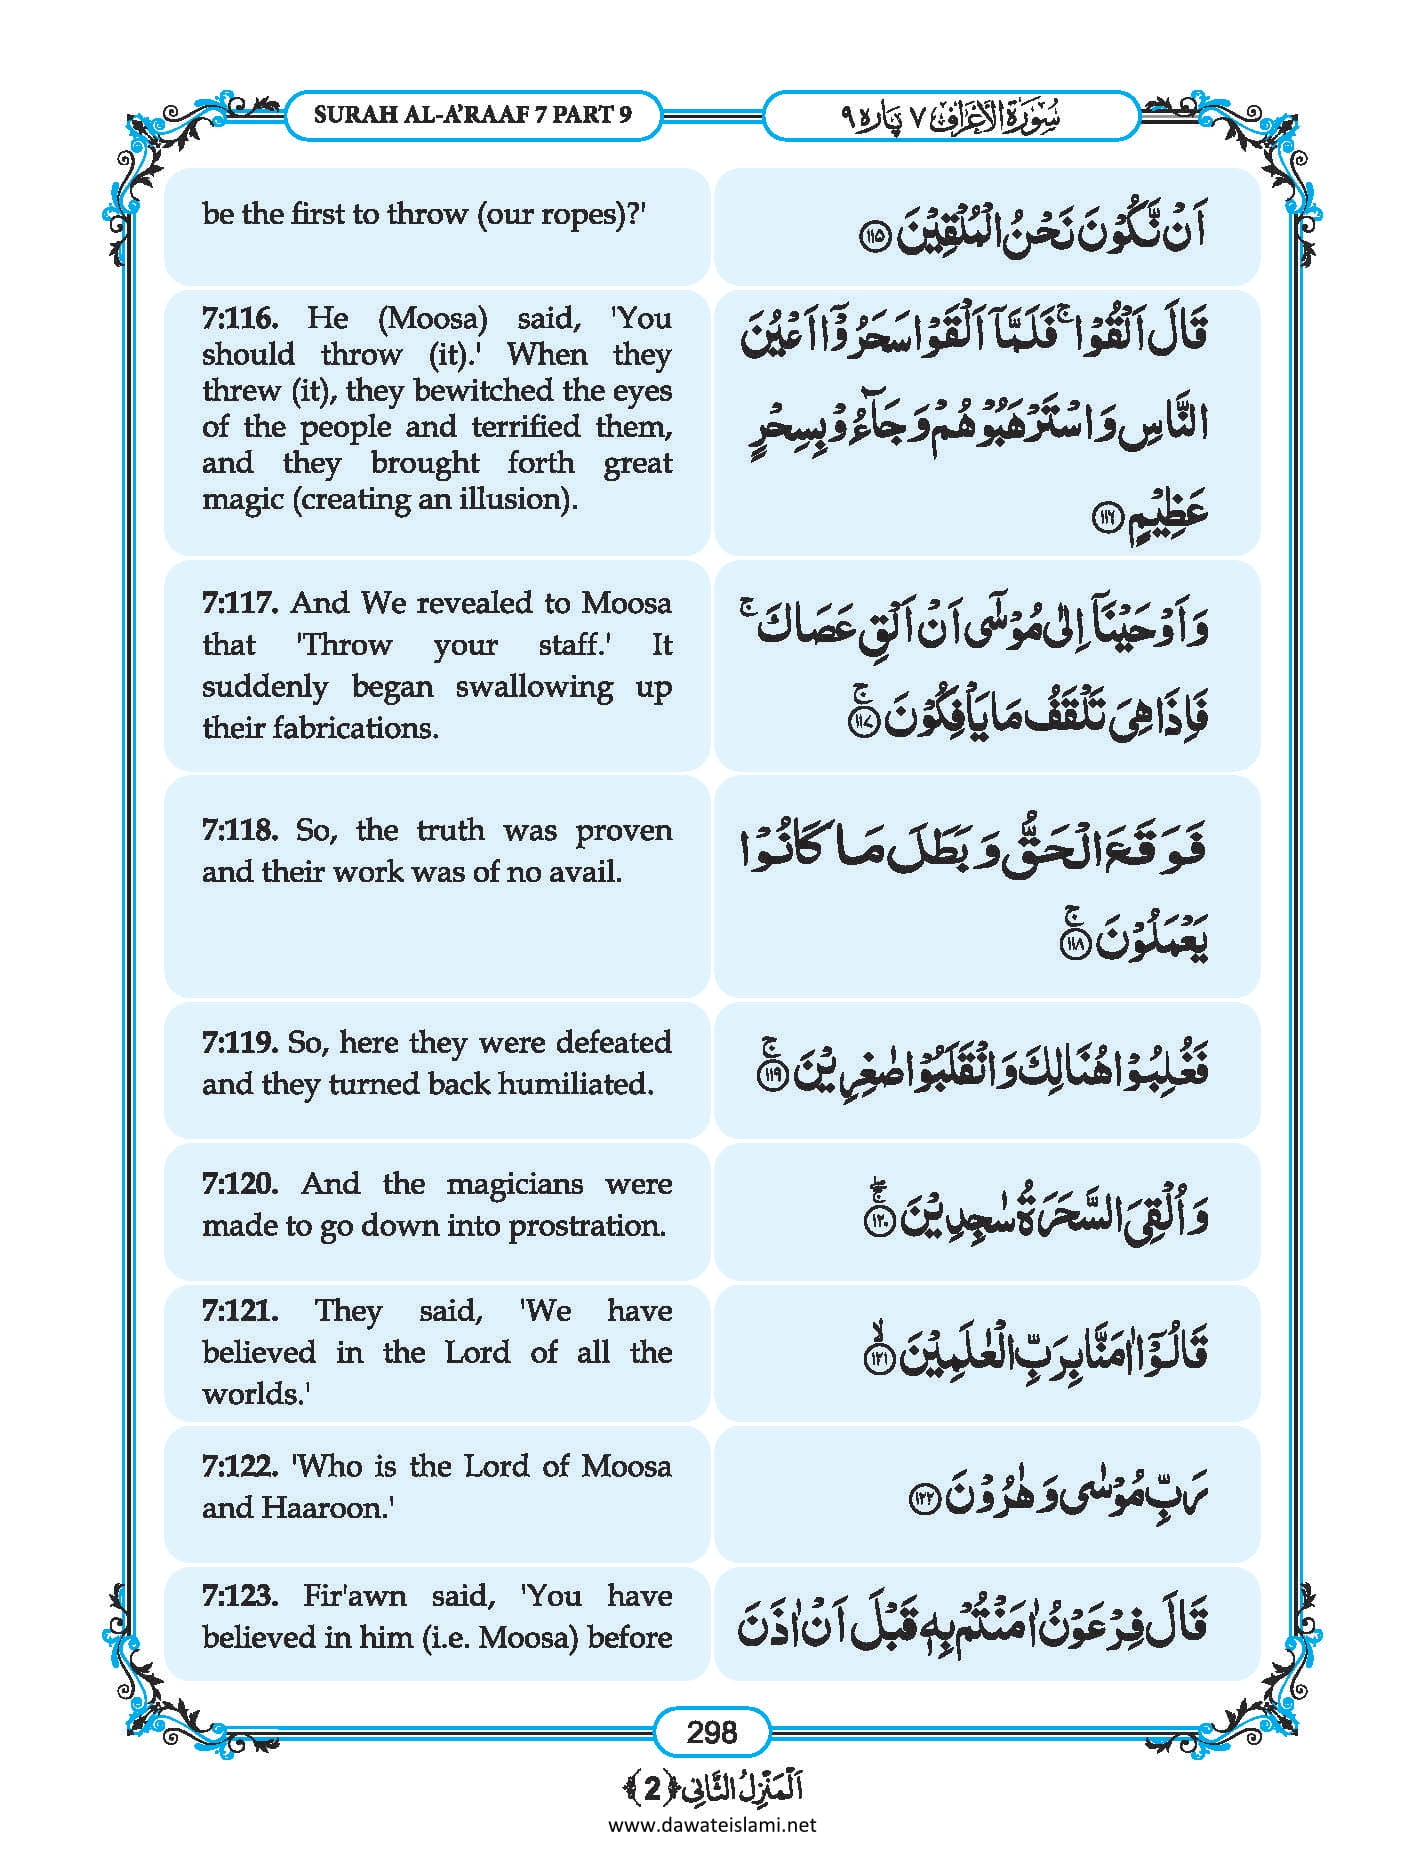 SURAH AL-A'RAAF 7 PART 9
سُوْرَةُ الْاَعْرَاف ٧ پَارہ ٩
be the first to throw (our ropes)?'
اَنْ نَّكُوْنَ نَحْنُ الْمُلْقِيْنَ ﴿۱۱۵﴾
7:116. He (Moosa) said, 'You
should throw (it).' When they
threw (it), they bewitched the eyes
of the people and terrified them,
and they brought forth great
magic (creating an illusion).
قَالَ اَلْقُوْا ۚ فَلَمَّاۤ اَلْقَوْا سَحَرُوْۤا اَعْيُنَ
النَّاسِ وَ اسْتَرْهَبُوْهُمْ وَ جَآءُوْ بِسِحْرٍ
عَظِيْمٍ ﴿۱۱۶﴾
7:117. And We revealed to Moosa
that 'Throw your staff.' It
suddenly began swallowing up
their fabrications.
وَ اَوْحَيْنَاۤ اِلٰى مُوْسٰۤى اَنْ اَلْقِ عَصَاكَ ۚ
فَاِذَا هِيَ تَلْقَفُ مَا يَاْفِكُوْنَ ﴿۱۱۷﴾ ۚ
7:118. So, the truth was proven
and their work was of no avail.
فَوَقَعَ الْحَقُّ وَ بَطَلَ مَا كَانُوْا
يَعْمَلُوْنَ ﴿۱۱۸﴾ ۚ
7:119. So, here they were defeated
and they turned back humiliated.
فَغُلِبُوْا هُنَالِكَ وَ انْقَلَبُوْا صٰغِرِيْنَ ﴿۱۱۹﴾ ۚ
7:120. And the magicians were
made to go down into prostration.
وَ اُلْقِيَ السَّحَرَةُ سٰجِدِيْنَ ﴿۱۲۰﴾ ۚۖ
7:121. They said, 'We have
believed in the Lord of all the
worlds.'
قَالُوْۤا اٰمَنَّا بِرَبِّ الْعٰلَمِيْنَ ﴿۱۲۱﴾ ۙ
7:122. 'Who is the Lord of Moosa
and Haaroon.'
رَبِّ مُوْسٰى وَ هٰرُوْنَ ﴿۱۲۲﴾
7:123. Fir'awn said, 'You have
believed in him (i.e. Moosa) before
قَالَ فِرْعَوْنُ اٰمَنْتُمْ بِهٖ قَبْلَ اَنْ اٰذَنَ
298
اَلْمَنْزِلُ الثَّانِی ﴿2﴾
www.dawateislami.net